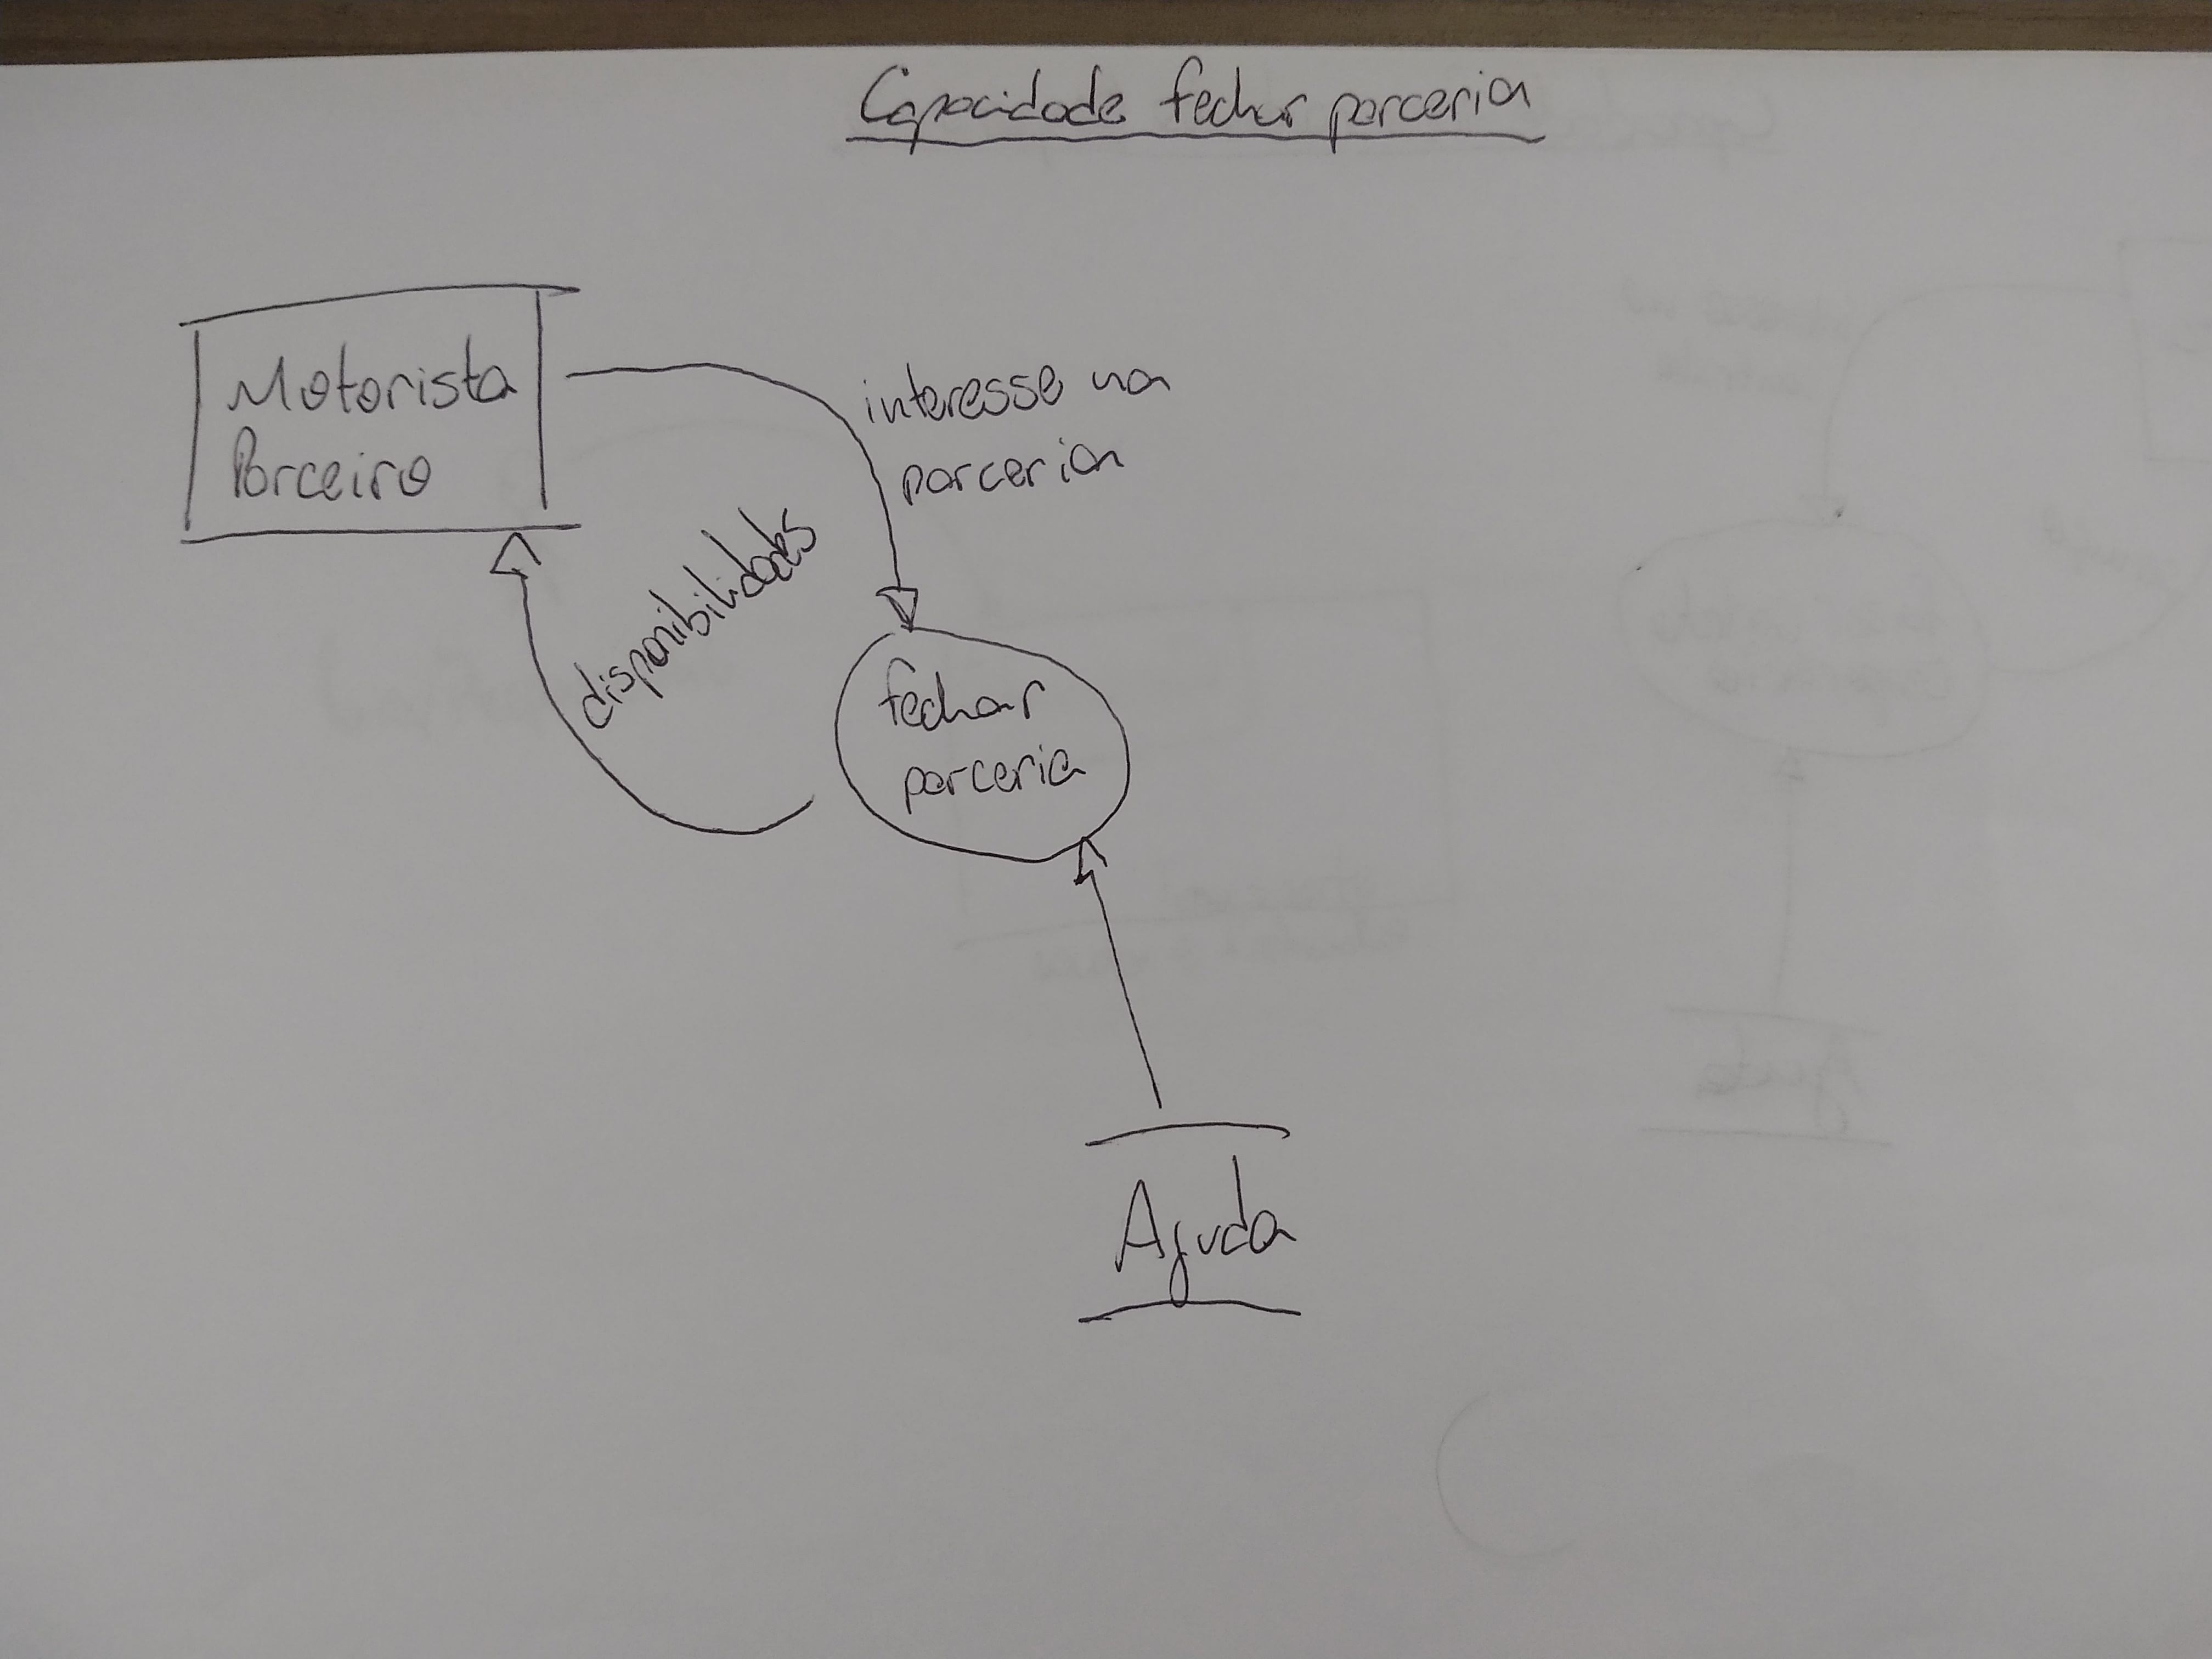 Capacidade fechar parceria
Motorista
Parceiro
interesse na
parceria
disponibilidades
fechar
parceria
Ajuda